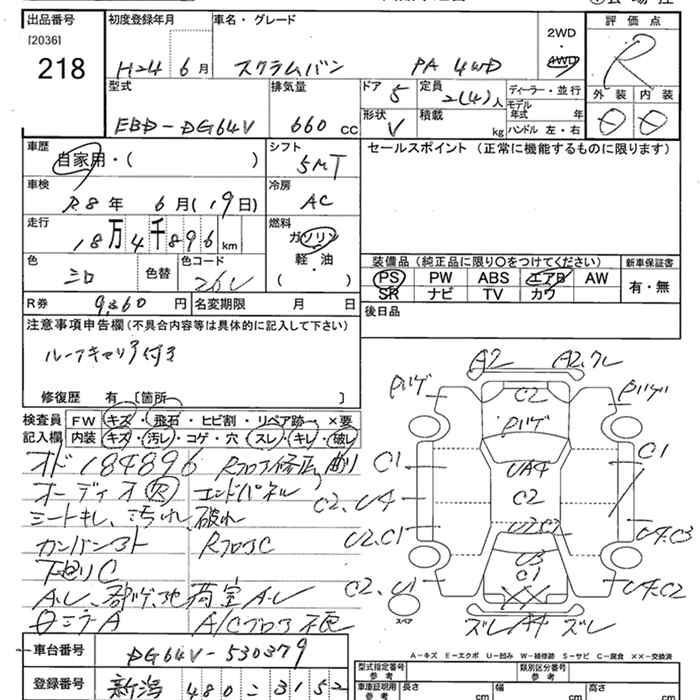 出品番号
[2036]
218
初度登録年月
H24 6月
車名・グレード
スクラムバン PA 4WD
2WD
・
4WD
評価点
R
外装 内装
型式
EBD-DG64V
排気量
660 cc
ドア 5
形状 V
定員 2(4)人
積載 kg
ディーラー・並行
モデル年式 年
ハンドル 左・右
車歴
自家用・( )
シフト
5MT
セールスポイント(正常に機能するものに限ります)
車検
R8年 6月(19日)
冷房
AC
走行
18万4千896km
燃料
ガソリン
(軽・油)
色
シロ
色替
色コード
26U
装備品(純正品に限り○をつけてください)
PS PW ABS エアB AW
SR ナビ TV カワ
新車保証書
有・無
R券 9,860円
名変期限 月 日
後日品
注意事項申告欄(不具合内容等は具体的に記入して下さい)
ルーフキャリア付き
修復歴 有[箇所 ]
検査員記入欄
FW キズ・飛石・ヒビ割・リペア跡・×要
内装 キズ・汚れ・コゲ・穴・スレ・キレ・破レ
オド184896 Rフロア修正、曲り
オーディオ欠 エンドパネル
シートキレ、汚れ、破れ
カンバン3ト RフロアC
下回りC
A・L、部サゲ、地 荷室A・L
ロミラーA A/Cブロア不良
A2 A2,クレ
バゲ C2 バゲ
バゲ
C1 UA4 C1
C2、U4 C2
U2、C1 U2 C2 U4、C3
U3
C2、U1 C1 U4、C2
××
スペア
ズレ A4 ズレ
A―キズ E―エクボ U―凹み W―補修跡 S―サビ C―腐食 ××―交換済
車台番号 DG64V-530379
登録番号 新潟 480 こ 3152
型式指定番号 参考
類別区分番号 参考
車庫証明用 参考
長さ cm
幅 cm
高さ cm